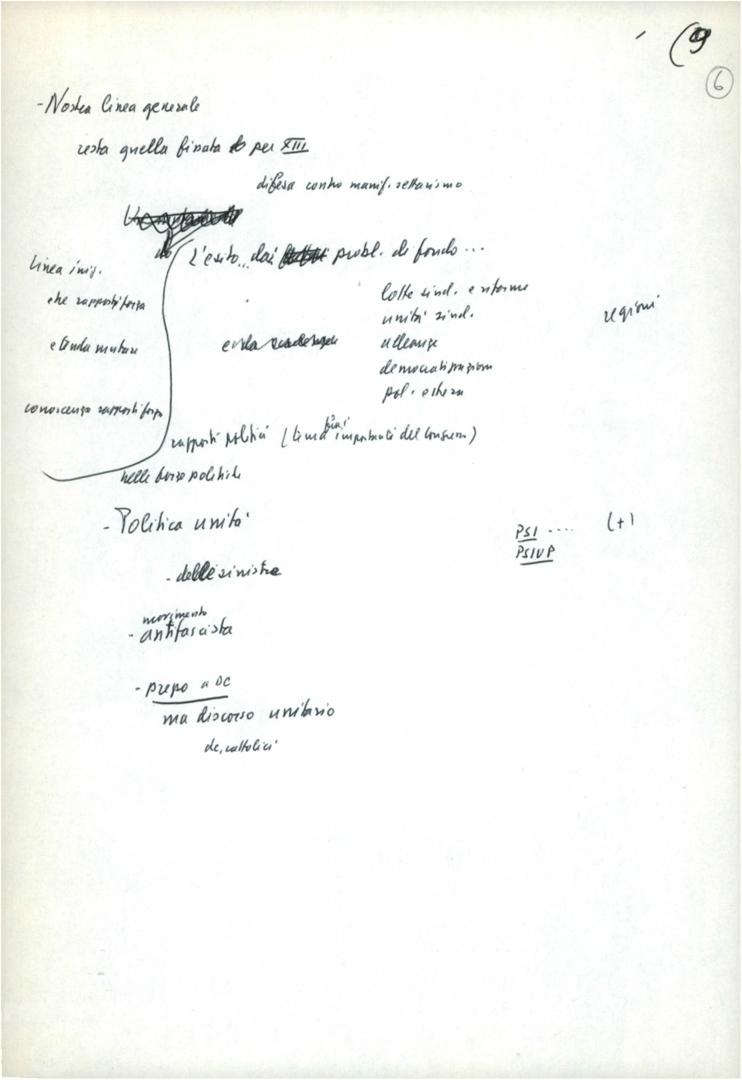 (9
6
- Nostra linea generale
resta quella fissata per XIII
difesa contro manif. settarismo
L'esito... dai probl. di fondo...
linea
che rapporti forza
e tenda mutare
conoscenza rapporti forza
lotte sind. e riforme
unità sind.
alleanze
democratizzazione
pol. estera
regioni
rapporti politici (tema importanti del Congresso)
nelle forze politiche
- Politica unità
- delle sinistre
PSI .... (+)
PSIUP
movimento
- antifascista
- prepo a DC
ma discorso unitario
dc, cattolici